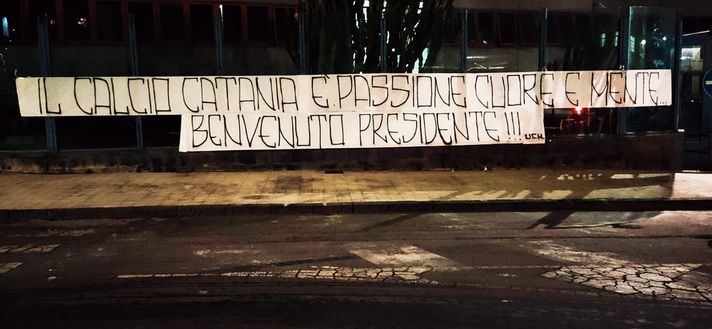 IL CALCIO CATANIA È PASSIONE CUORE E MENTE...
BENVENUTO PRESIDENTE!!! UCN